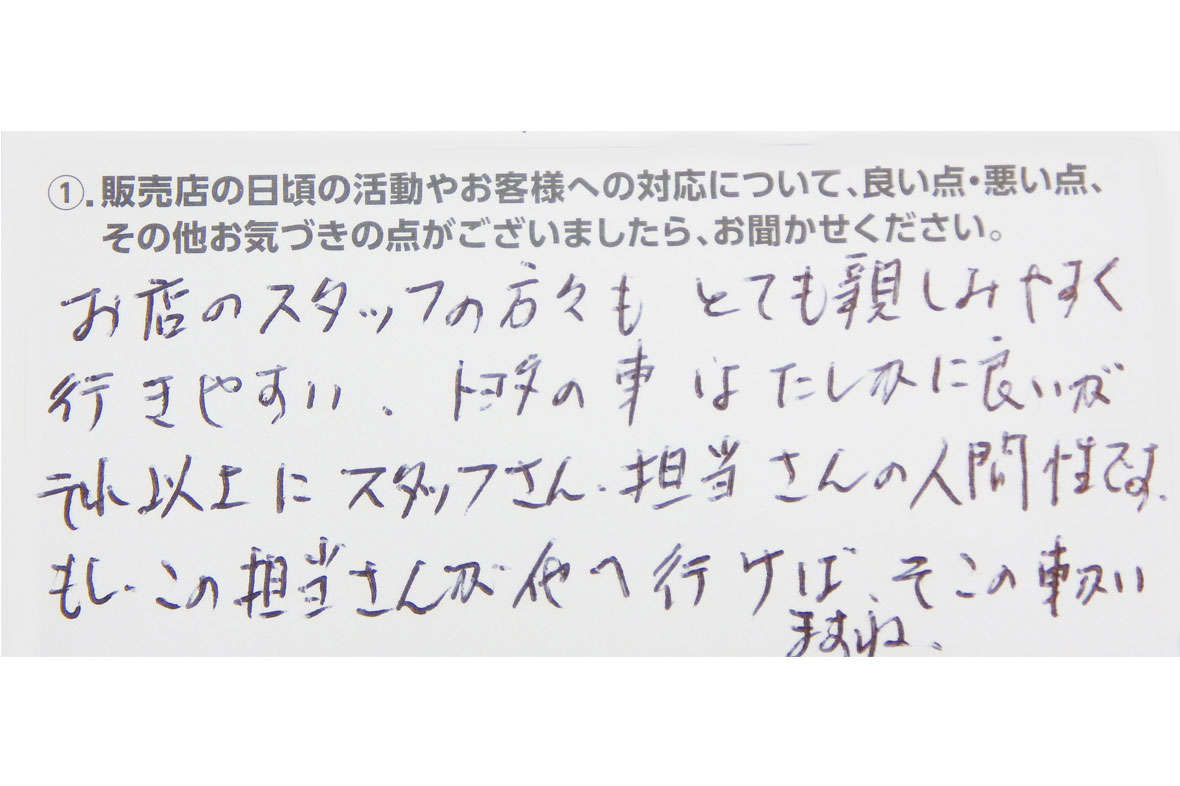 ①.販売店の日頃の活動やお客様への対応について、良い点・悪い点、
その他お気づきの点がございましたら、お聞かせください。
お店のスタッフの方々も とても親しみやすく
行きやすい、トヨタの車はたしかに良いが
それ以上にスタッフさん、担当さんの人間性です。
もし、この担当さんが他へ行けば、そこの車買い
ますね、